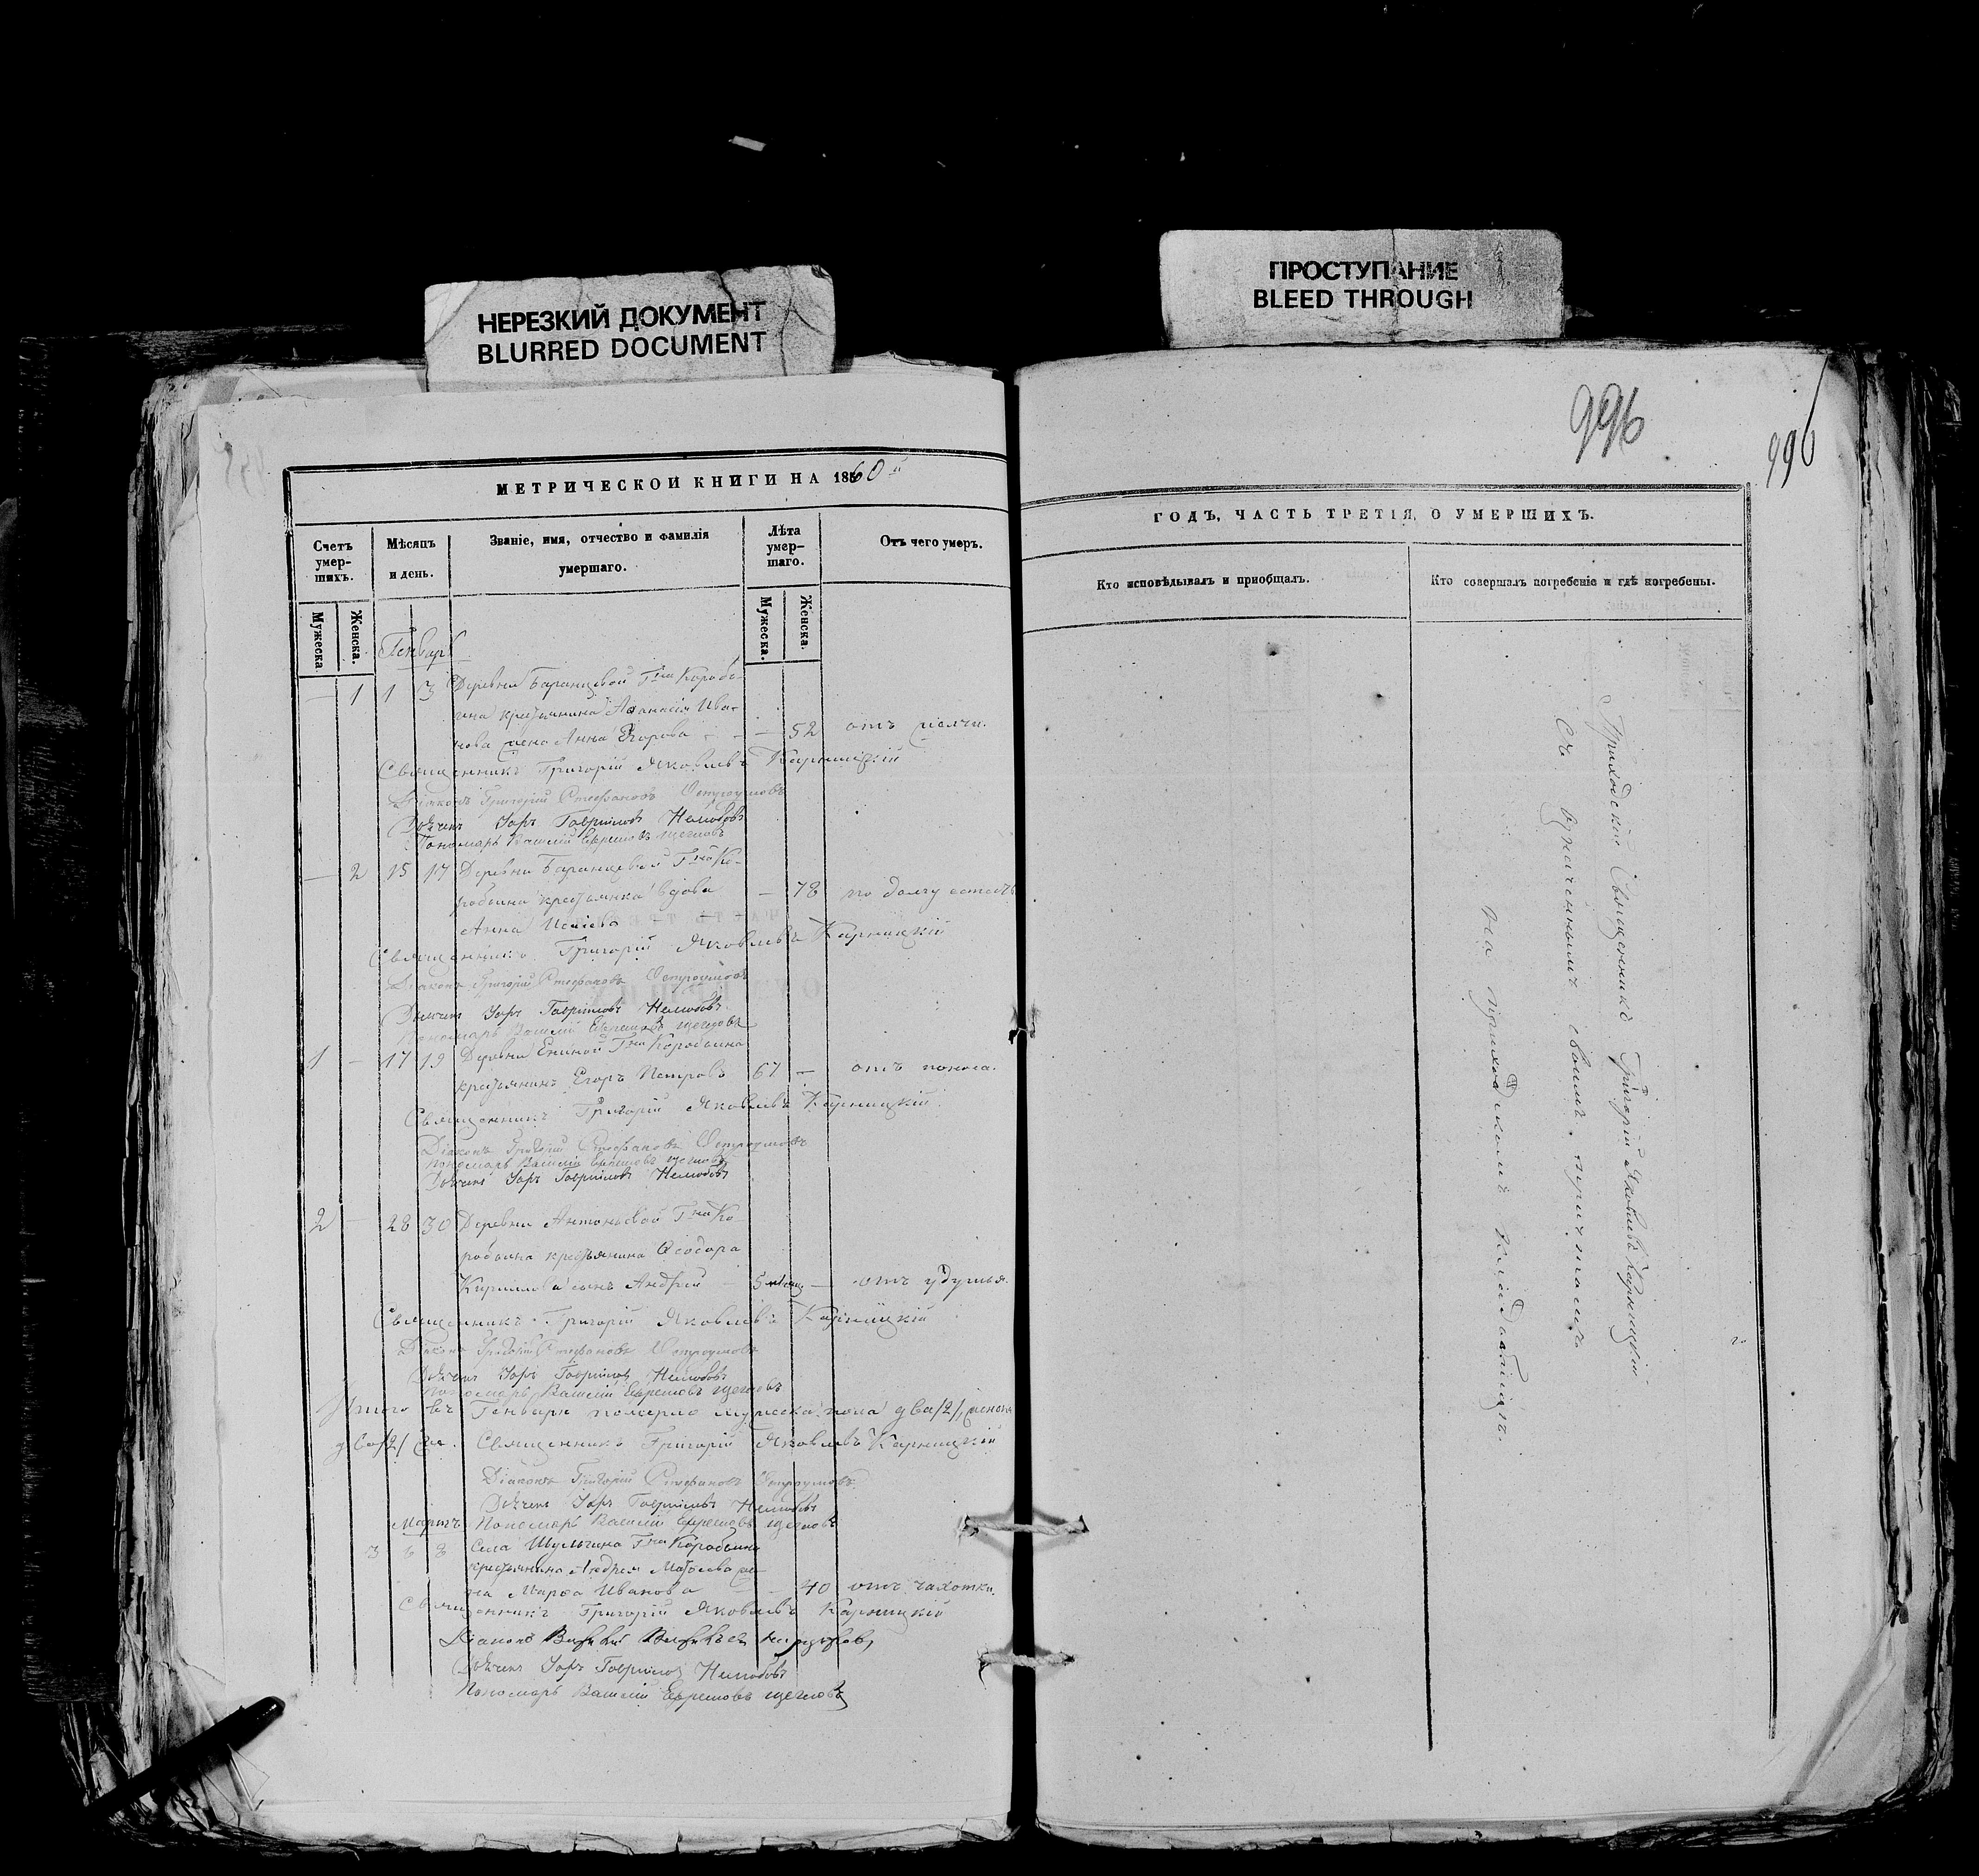 НЕРЕЗКИЙ ДОКУМЕНТ
BLURRED DOCUMENT
ПРОСТУПАНИЕ
BLEED THROUGH
996
996
МЕТРИЧЕСКОЙ КНИГИ НА 1860й
Счетъ умер-шихъ.
Мѣсяцъ и день.
Званіе, имя, отчество и фамилія умершаго.
Лѣта умер-шаго.
Отъ чего умеръ.
Мужеска.
Женска.
Мужеска.
Женска.
Генварь
— 1 1 3 Деревни Баранцевой Гна Коробь-
ина крестьянина Аѳанасія Ива-
нова жена Анна Егорова — — 52 отъ
Священникъ Григорій Яковлевъ Карницкій
Діаконъ Григорій Стефановъ Остроумовъ
Дьячекъ Уаръ Гавріиловъ Нелюбовъ
Пономарь Василій Ефремовъ Щегловъ
— 2 15 17 Деревни Баранцевой Гна Ко-
робьина крестьянка вдова — 78 по долгу естест
Анна Исаіева
Священникъ Григорій Яковлевъ Карницкій
Діаконъ Григорій Стефановъ Остроумовъ
Дьячекъ Уаръ Гавріиловъ Нелюбовъ
Пономарь Василій Ефремовъ Щегловъ
1 — 17 19 Деревни Гна Коробьина
крестьянинъ Егоръ Петровъ 67 — отъ поноса.
Священникъ Григорій Яковлевъ Карницкій
Діаконъ Григорій Стефановъ Остроумовъ
Пономарь Василій Ефремовъ Щегловъ
Дьячекъ Уаръ Гавріиловъ Нелюбовъ
2 — 28 30 Деревни Антоньевой Гна Ко
робьина крестьянина Ѳеодора
Кириллова сынъ Андрей — 5 — отъ удушья.
Священникъ Григорій Яковлевъ Карницкій
Діаконъ Григорій Стефановъ Остроумовъ
Дьячекъ Уаръ Гавріиловъ Нелюбовъ
Пономарь Василій Ефремовъ Щегловъ
Итого въ Генварѣ померло мужеска пола два /2/, женска
два /2/ Священникъ Григорій Яковлевъ Карницкій
Діаконъ Григорій Стефановъ Остроумовъ
Дьячекъ Уаръ Гавріиловъ Нелюбовъ
Мартъ Пономарь Василій Ефремовъ Щегловъ
3 6 8 Села Шульгина Гна Коробьина
крестьянина Андрея Матвѣева же-
на Марѳа Иванова — 40 отъ чахотки.
Священникъ Григорій Яковлевъ Карницкій
Діаконъ
Дьячекъ Уаръ Гавріиловъ Нелюбовъ
Пономарь Василій Ефремовъ Щегловъ
ГОДЪ, ЧАСТЬ ТРЕТІЯ, О УМЕРШИХЪ.
Кто исповѣдывалъ и приобщалъ.
Кто совершалъ погребеніе и гдѣ погребены.
Приходскій Священникъ Григорій Яковлевъ Карницкій
Съ означеннымъ своимъ причтомъ
на приходскомъ кладбищѣ.